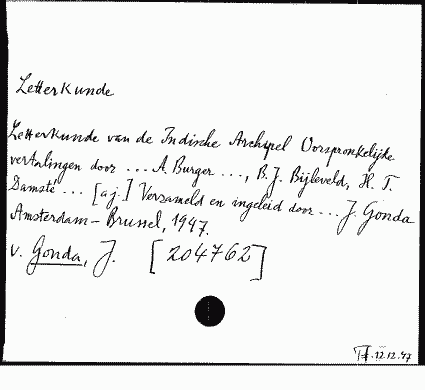 Letterkunde
Letterkunde van de Indische Archipel Oorspronkelijke
vertalingen door ... A. Burger ..., B. J. Bijleveld, H. T.
Damsté ... [a.j.] Verzameld en ingeleid door ... J. Gonda
Amsterdam - Brussel, 1947.
v. Gonda, J. [204762]
12.12.47